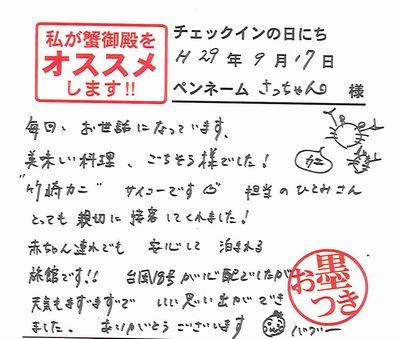 私が蟹御殿を
オススメ
します!!
チェックインの日にち
H 29 年 9 月 17 日
ペンネーム さっちゃん 様
毎回、お世話になっています。
美味しい料理、ごちそう様でした!
カニ
"竹崎カニ" サイコーです 担当のひとみさん
とっても 親切に 接客 してくれました!
赤ちゃん連れでも 安心して 泊まれる
旅館です!! 台風18号が心配でしたが
天気もまずまずで いい思い出ができ
ました。 ありがとうございます バブー
お墨
つき